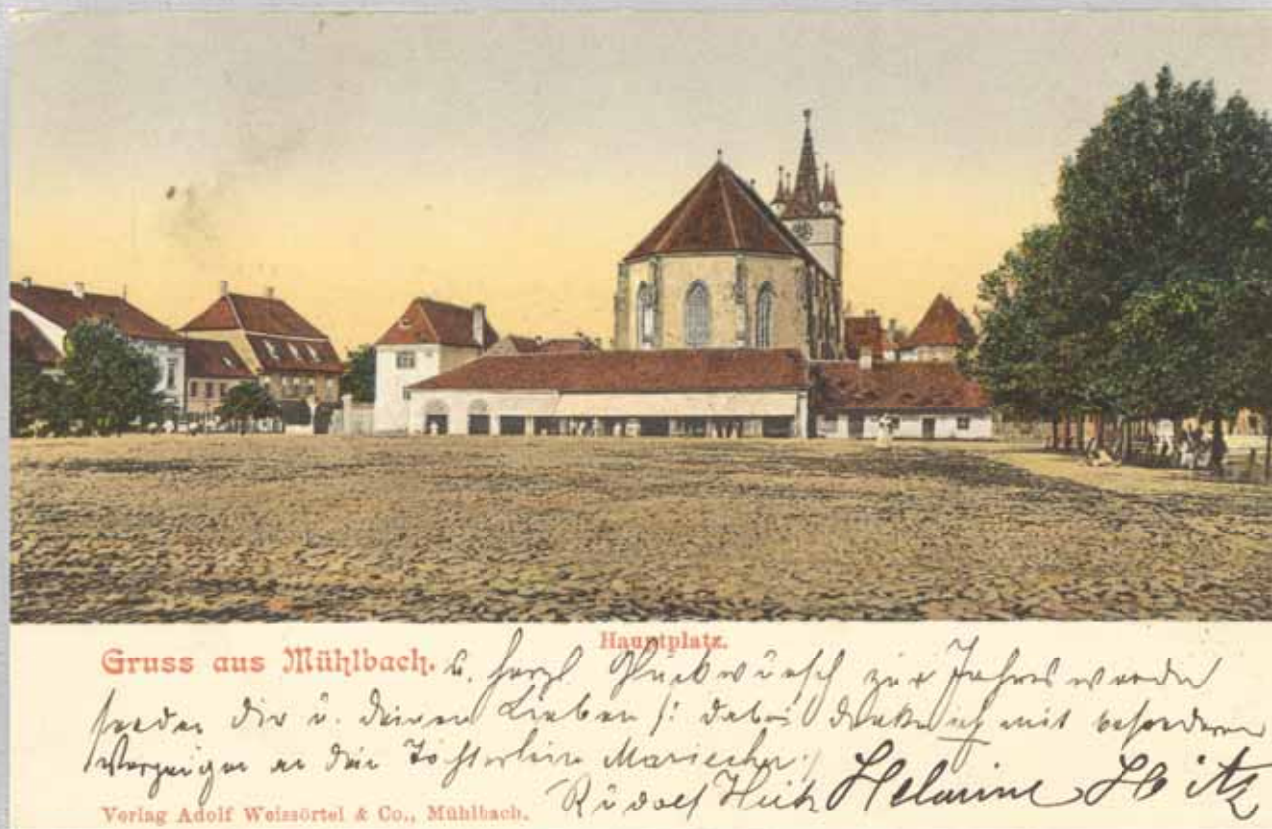 Hauptplatz.
Gruss aus Mühlbach. u. herzl Glückwünsch zur Jahreswende
senden dir u. deinen Lieben /: dabei denke ich mit besonderem
Vergnügen an dein Töchterlein Mariechen :/
Rudolf Helamine Hitz
Verlag Adolf Weissörtel & Co., Mühlbach.